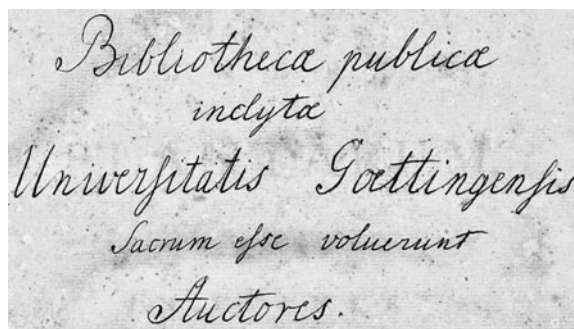 Bibliothecæ publicæ
inclytæ
Univerſitatis Gœttingenſis
Sacrum eſse voluerunt
Auctores.